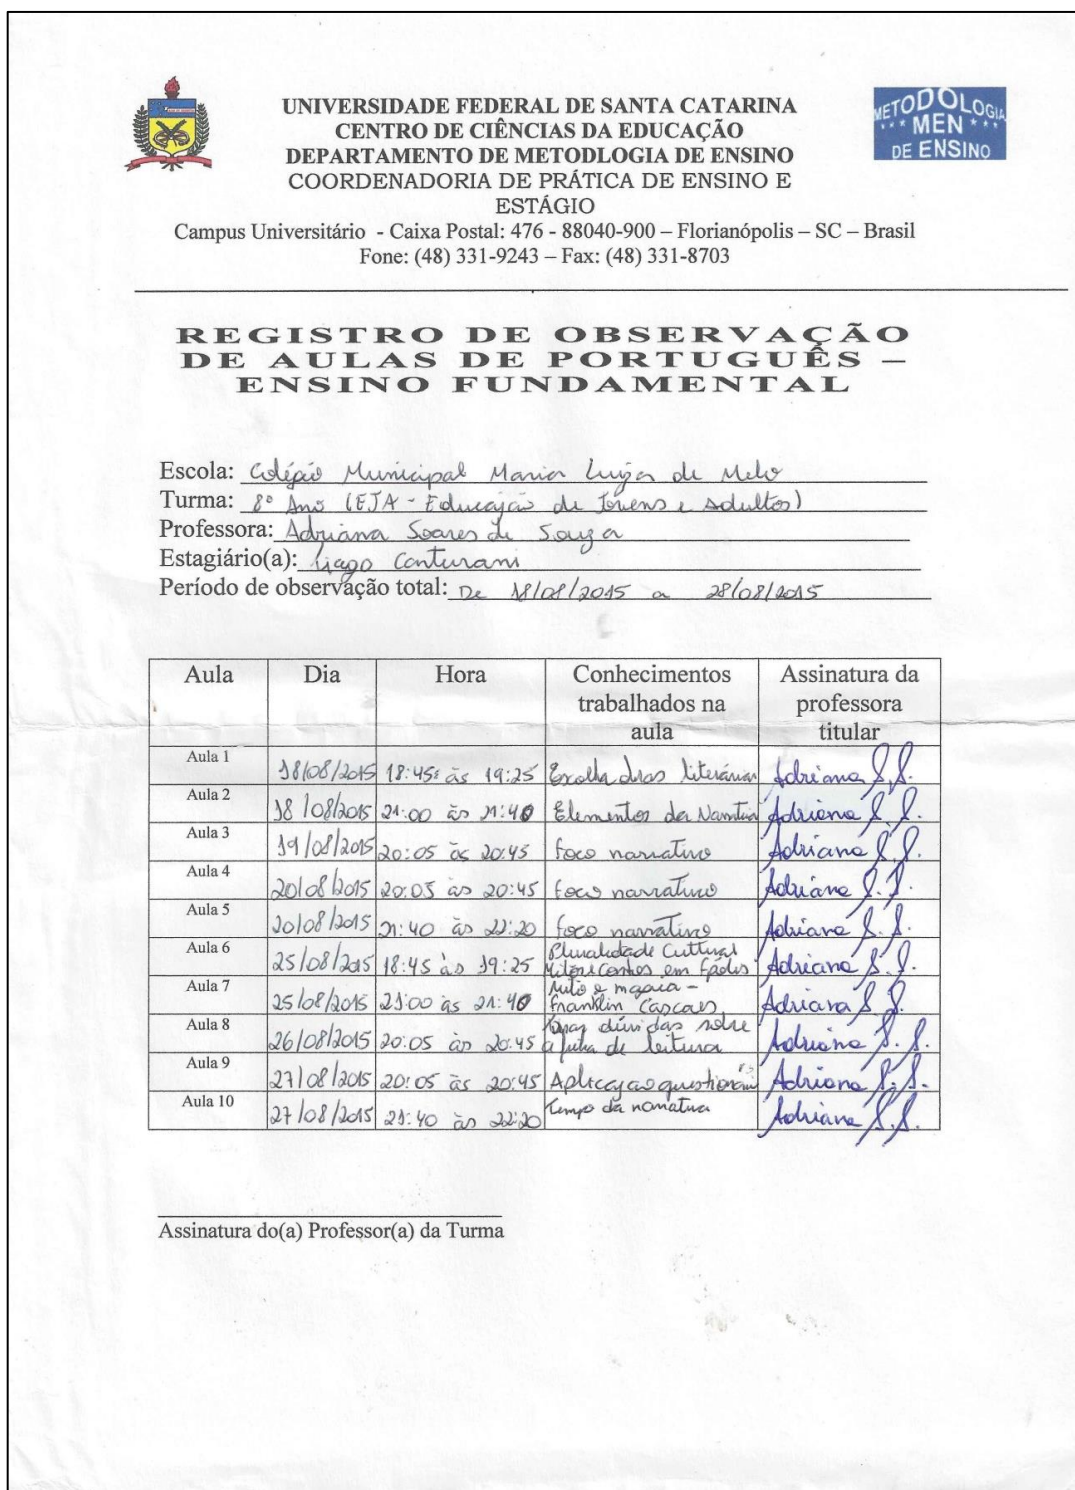 UNIVERSIDADE FEDERAL DE SANTA CATARINA
CENTRO DE CIÊNCIAS DA EDUCAÇÃO
DEPARTAMENTO DE METODLOGIA DE ENSINO
COORDENADORIA DE PRÁTICA DE ENSINO E
ESTÁGIO
METODOLOGIA
MEN
DE ENSINO
Campus Universitário - Caixa Postal: 476 - 88040-900 – Florianópolis – SC – Brasil
Fone: (48) 331-9243 – Fax: (48) 331-8703
REGISTRO DE OBSERVAÇÃO
DE AULAS DE PORTUGUÊS –
ENSINO FUNDAMENTAL
Escola: Colégio Municipal Maria Luiza de Melo
Turma: 8º Ano (EJA - Educação de Jovens e Adultos)
Professora: Adriana Soares de Souza
Estagiário(a): Tiago Conturani
Período de observação total: De 18/08/2015 a 28/08/2015
Aula Dia Hora Conhecimentos trabalhados na aula Assinatura da professora titular
Aula 1 18/08/2015 18:45 às 19:25 Escolha literárias Adriana S.S.
Aula 2 18/08/2015 21:00 às 21:40 Elementos da Narrativa Adriana S.S.
Aula 3 19/08/2015 20:05 às 20:45 Foco narrativo Adriana S.S.
Aula 4 20/08/2015 20:05 às 20:45 Foco narrativo Adriana S.S.
Aula 5 20/08/2015 21:40 às 22:20 Foco narrativo Adriana S.S.
Aula 6 25/08/2015 18:45 às 19:25 Pluralidade Cultural em Adriana S.S.
Aula 7 25/08/2015 21:00 às 21:40 Mito e magia - Franklin Cascaes Adriana S.S.
Aula 8 26/08/2015 20:05 às 20:45 dúvidas sobre a ficha de leitura Adriana S.S.
Aula 9 27/08/2015 20:05 às 20:45 Aplicação Adriana S.S.
Aula 10 27/08/2015 21:40 às 22:20 Tempo da narrativa Adriana S.S.
Assinatura do(a) Professor(a) da Turma